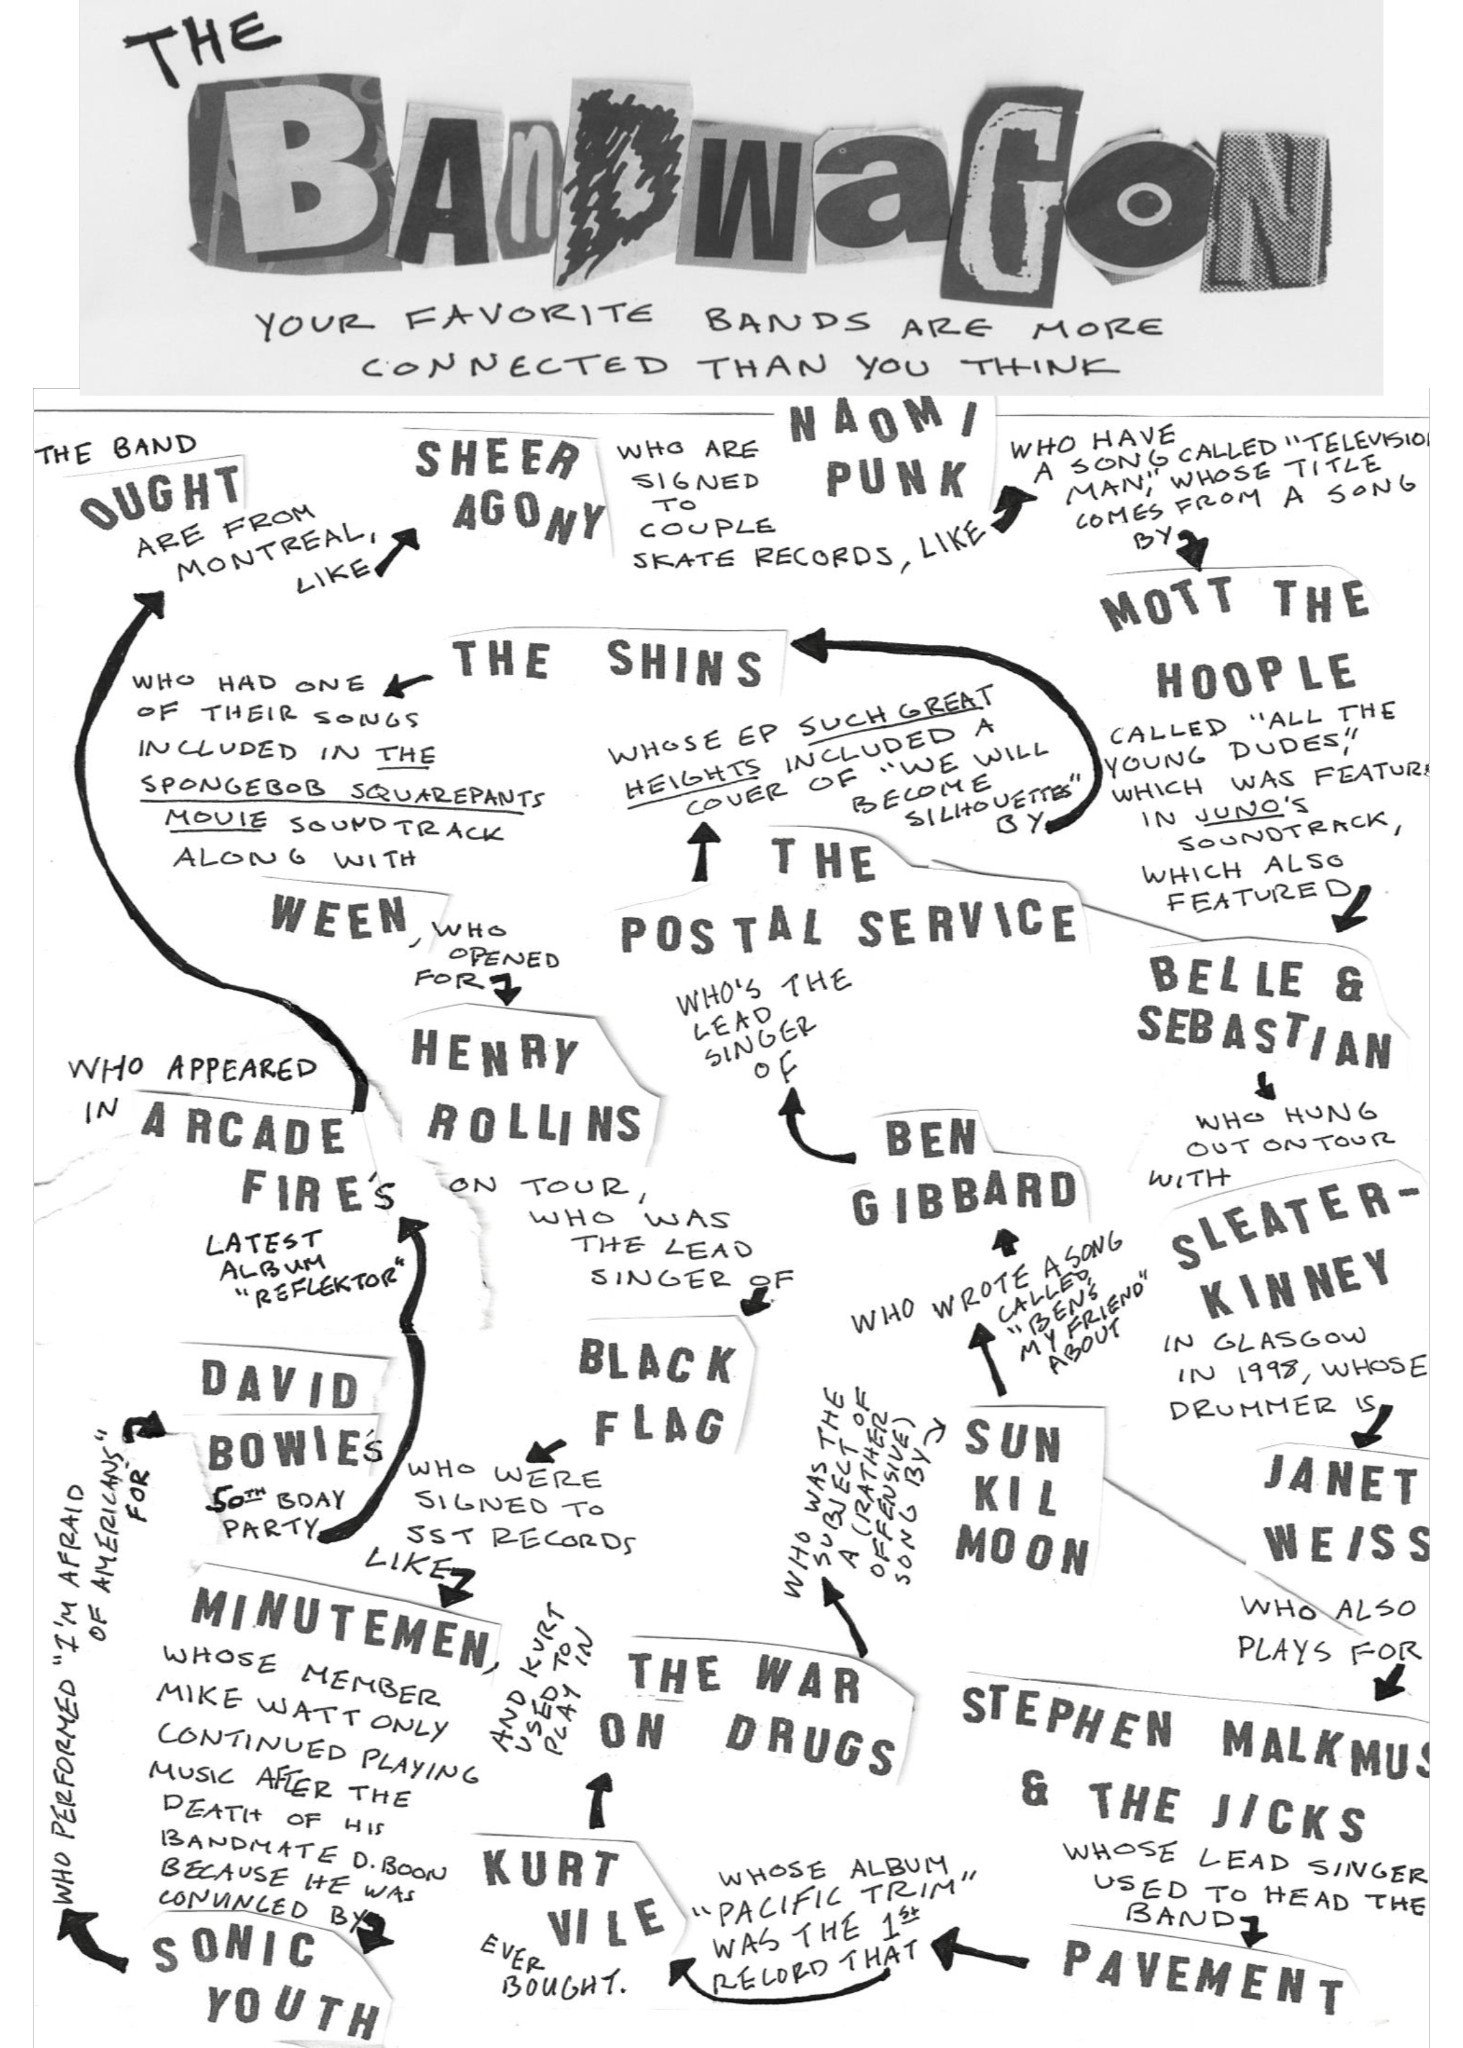 THE
BAnDWaGON
YOUR FAVORITE BANDS ARE MORE
CONNECTED THAN YOU THINK
THE BAND
OUGHT
ARE FROM
MONTREAL,
LIKE
SHEER
AGONY
WHO ARE
SIGNED
TO
COUPLE
SKATE RECORDS, LIKE
NAOMI
PUNK
WHO HAVE
A SONG CALLED "TELEVISION
MAN," WHOSE TITLE
COMES FROM A SONG
BY
MOTT THE
HOOPLE
CALLED "ALL THE
YOUNG DUDES,"
WHICH WAS FEATUR
IN JUNO'S
SOUNDTRACK,
WHICH ALSO
FEATURED
BELLE &
SEBASTIAN
WHO HUNG
OUT ON TOUR
WITH
SLEATER-
KINNEY
IN GLASGOW
IN 1998, WHOSE
DRUMMER IS
JANET
WEISS
WHO ALSO
PLAYS FOR
STEPHEN MALKMUS
& THE JICKS
WHOSE LEAD SINGER
USED TO HEAD THE
BAND
PAVEMENT
WHOSE ALBUM
"PACIFIC TRIM"
WAS THE 1ST
RECORD THAT
KURT
VILE
EVER
BOUGHT.
AND KURT
USED TO
PLAY IN
THE WAR
ON DRUGS
WHO WAS THE
SUBJECT OF
A (RATHER
OFFENSIVE)
SONG BY
SUN
KIL
MOON
WHO WROTE A SONG
CALLED
"BEN'S
MY FRIEND"
ABOUT
BEN
GIBBARD
WHO'S THE
LEAD
SINGER
OF
THE
POSTAL SERVICE
WHOSE EP SUCH GREAT
HEIGHTS INCLUDED A
COVER OF "WE WILL
BECOME
SILHOUETTES"
BY
THE SHINS
WHO HAD ONE
OF THEIR SONGS
INCLUDED IN THE
SPONGEBOB SQUAREPANTS
MOVIE SOUNDTRACK
ALONG WITH
WEEN, WHO
OPENED
FOR
HENRY
ROLLINS
ON TOUR,
WHO WAS
THE LEAD
SINGER OF
BLACK
FLAG
WHO WERE
SIGNED TO
SST RECORDS
LIKE
MINUTEMEN,
WHOSE MEMBER
MIKE WATT ONLY
CONTINUED PLAYING
MUSIC AFTER THE
DEATH OF HIS
BANDMATE D. BOON
BECAUSE HE WAS
CONVINCED BY
SONIC
YOUTH
WHO PERFORMED "I'M AFRAID
OF AMERICANS"
FOR
DAVID
BOWIE'S
50TH BDAY
PARTY
WHO APPEARED
IN ARCADE
FIRE'S
LATEST
ALBUM
"REFLEKTOR"